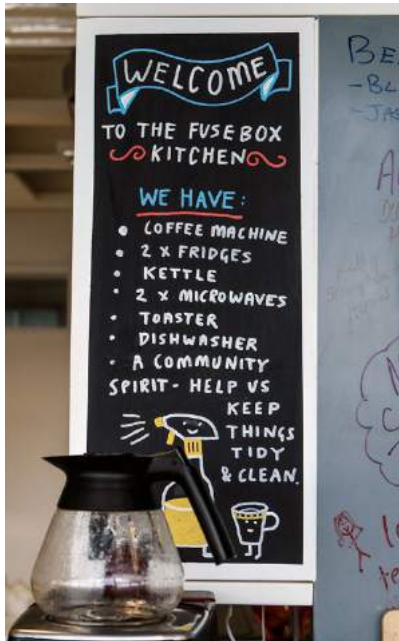 WELCOME
TO THE FUSEBOX
KITCHEN
WE HAVE:
• COFFEE MACHINE
• 2 X FRIDGES
• KETTLE
• 2 X MICROWAVES
• TOASTER
• DISHWASHER
• A COMMUNITY
SPIRIT - HELP US
KEEP
THINGS
TIDY
& CLEAN.